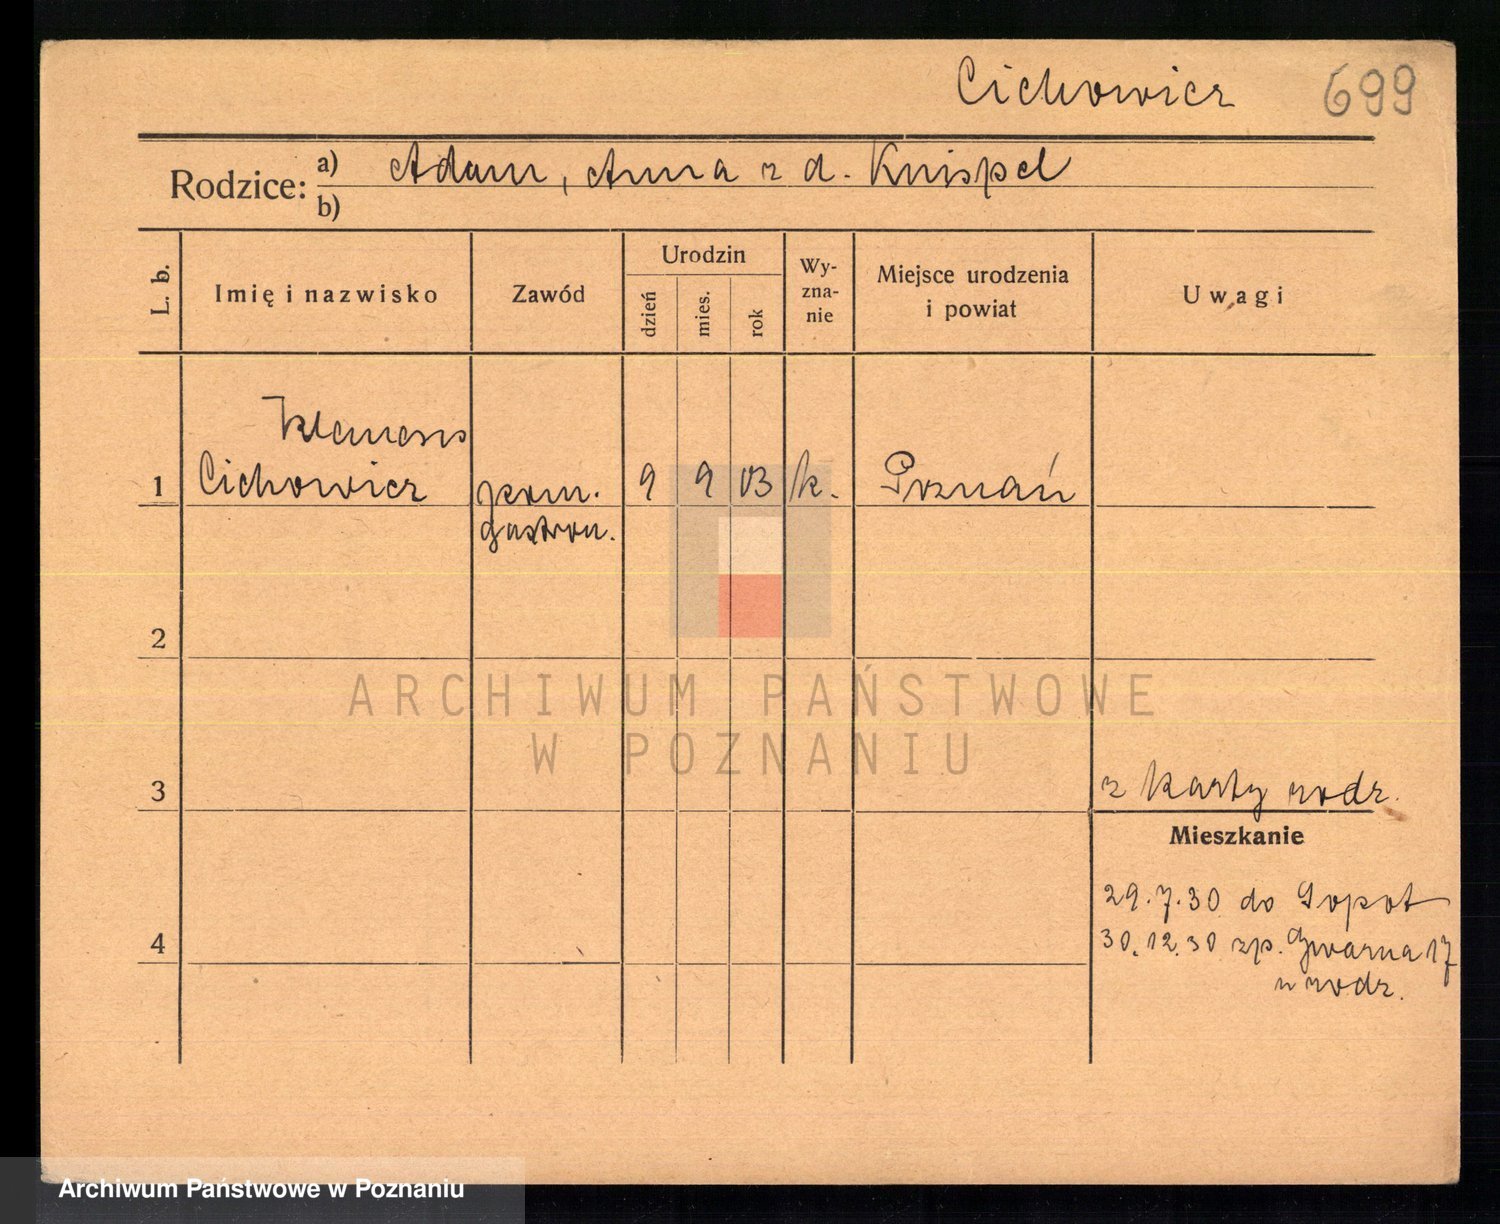 Cichowicz 699
Rodzice: a) Adam, Anna z d. Knispel
b)
L. b.
Imię i nazwisko
Zawód
Urodzin
dzień
mies.
rok
Wy-
zna-
nie
Miejsce urodzenia
i powiat
Uwagi
Klemens
1 Cichowicz pom. 9 9 03 k. Poznań
gastron.
2
ARCHIWUM PAŃSTWOWE
W POZNANIU
3 z karty rodz.
Mieszkanie
29.7.30 do Sopot
4 30.12.30 zp. Gwarna 17
u rodz.
Archiwum Państwowe w Poznaniu